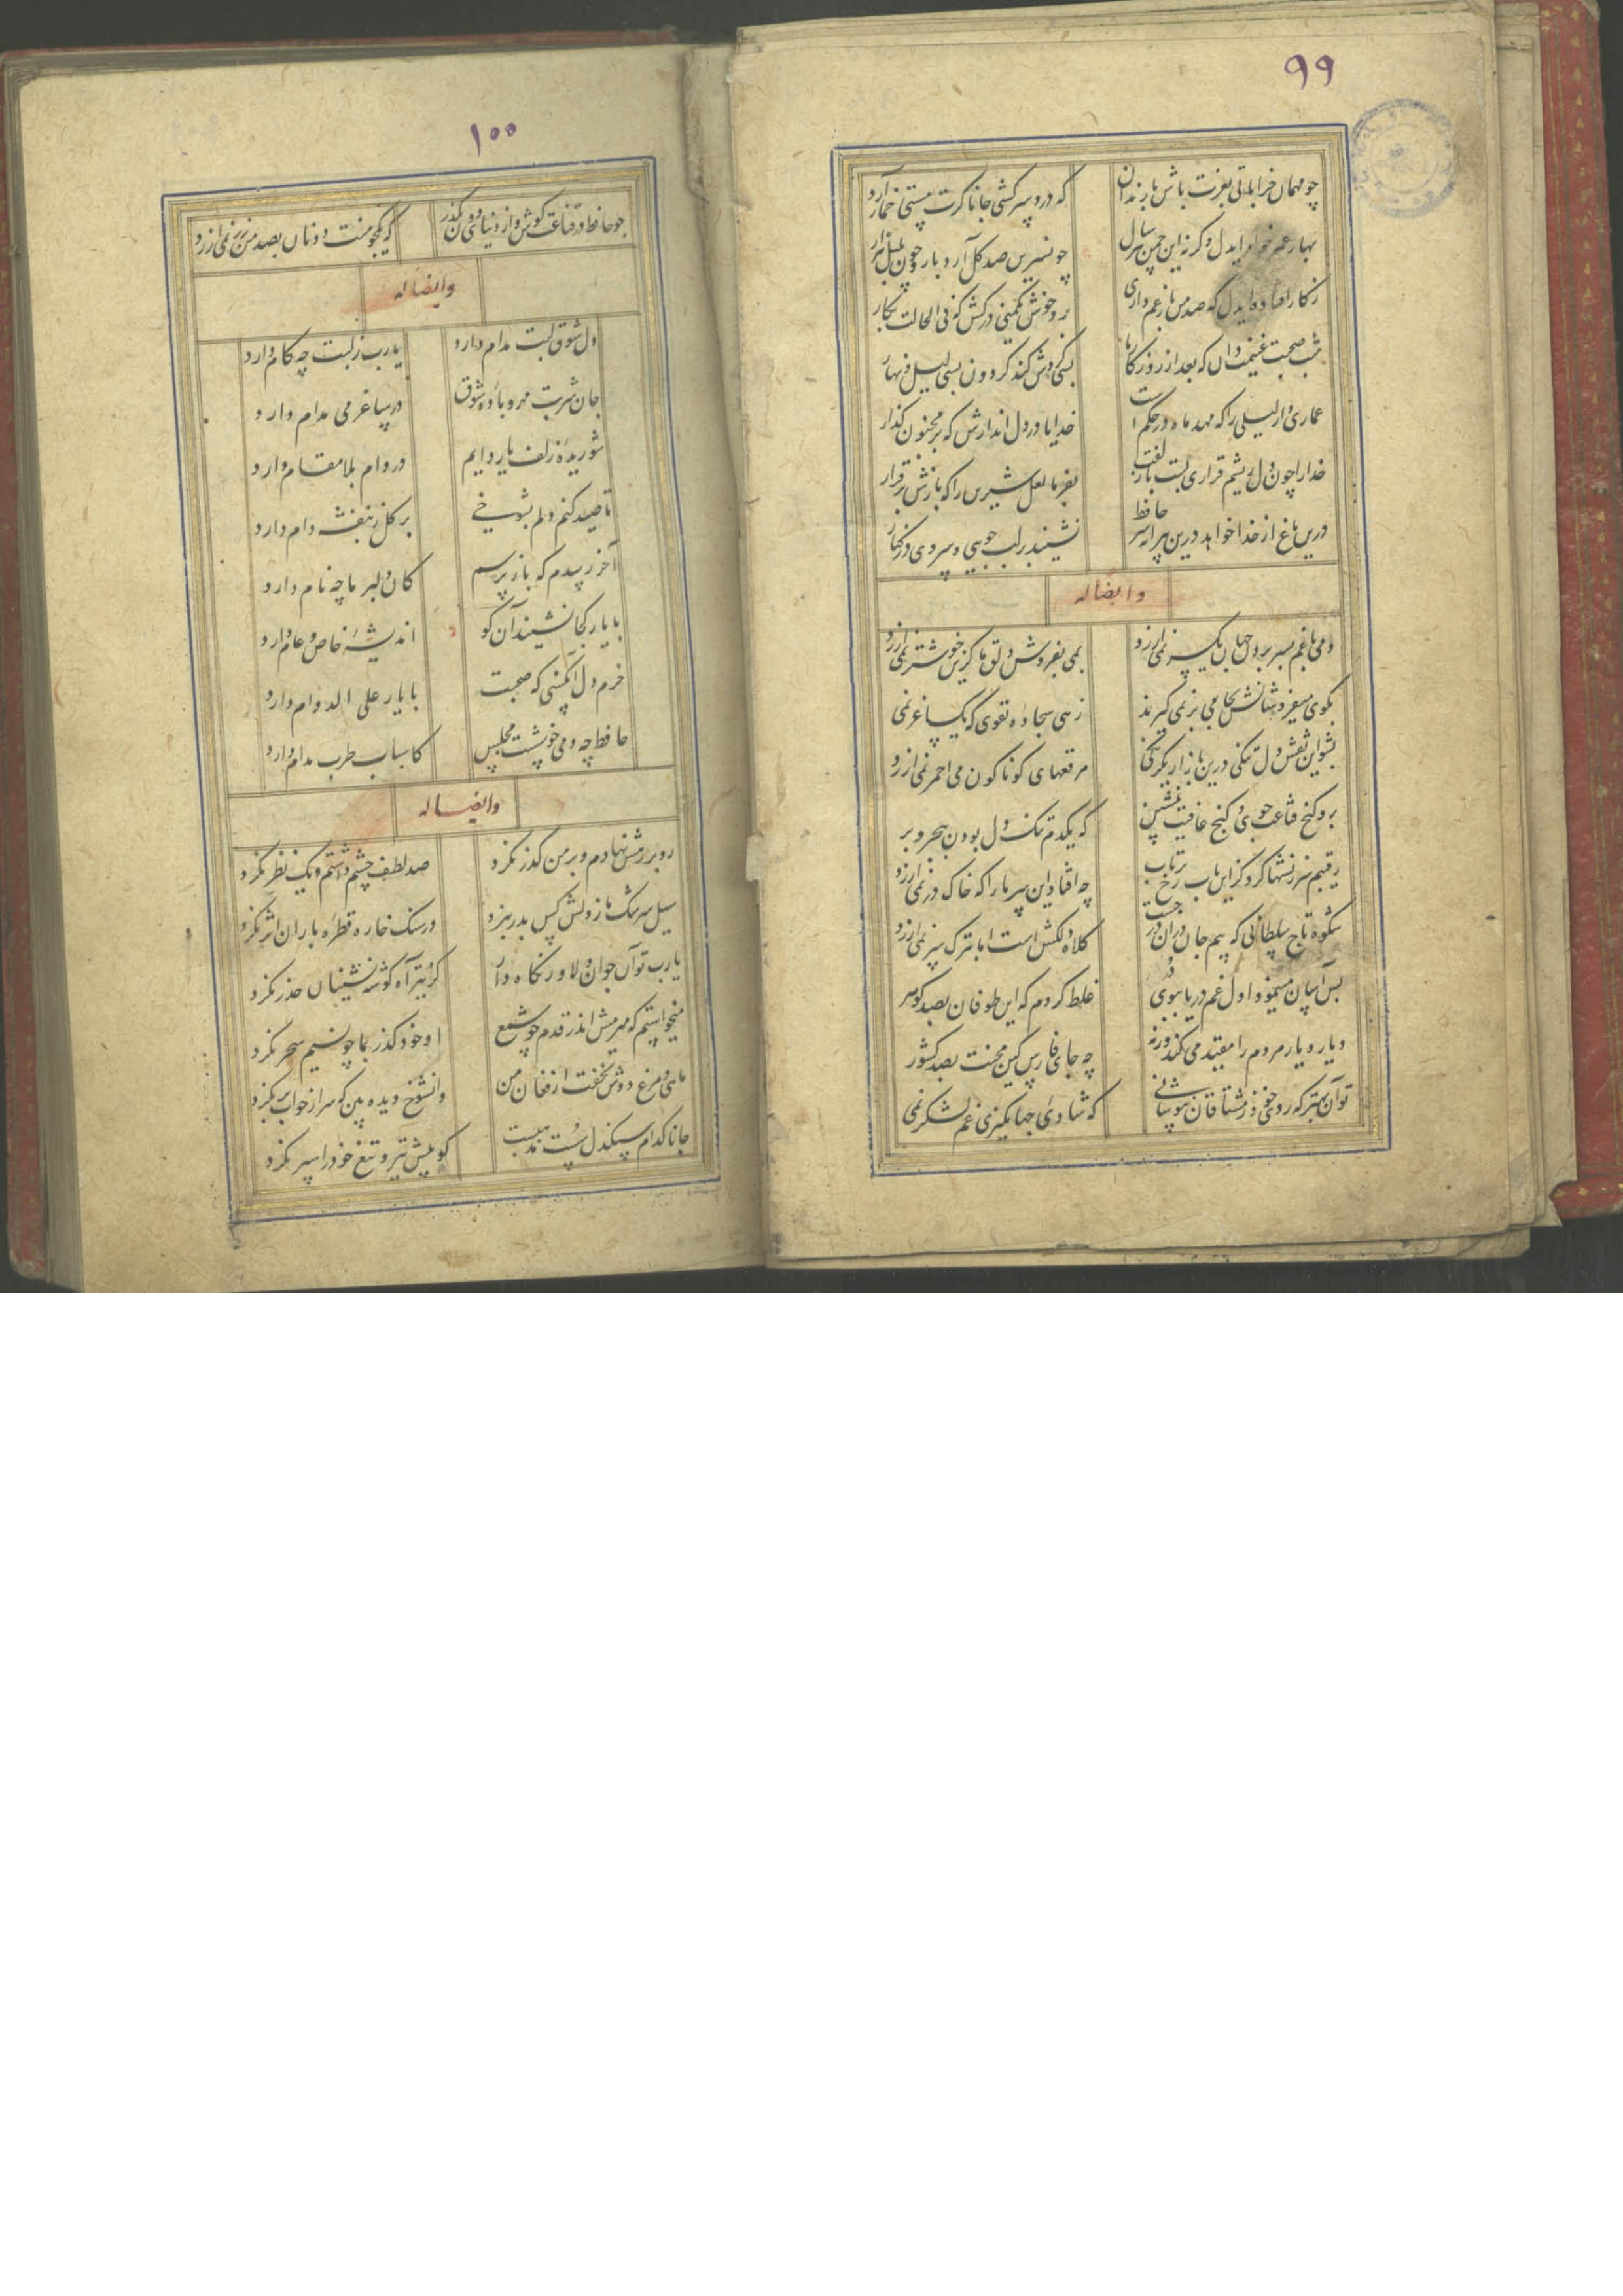 ۹۹
چو مهمان خراباتی بعزت باش با رندان
که درد سر کشی جانا کرت مستی خمار آرد
بهار عمر خواه ایدل وکرنه این چمن هر سال
چو نسرین صد کل آرد بار و چون بلبل هزار
ز کار افتاده ایدل که صد من بار غم داری
برو خوش یکمنی درکش که فی الحالت بکار
شب صحبت غنیمت دان که بعد از روزکار ما
بسی کردش کند کردون بسی لیل و نهار
عماری دار لیلی را که مهد ماه در حکم است
خدایا در دل اندازش که بر مجنون کذار
خدارا چون دل ریشم قراری بست با زلفت
بفرما لعل شیرین را که بازش برقرار
درین باغ از خدا خواهد درین پیرانه سر حافظ
نشیند بر لب جویی و سروی در کنار
وایضاً له
دمی با غم بسر بردن جهان یکسر نمی ارزد
بمی بفروش دلق ما کزین خوشتر نمی ارزد
بکوی میفروشانش بجامی بر نمی کیرند
زهی سجاده تقوی که یک ساغر نمی
بشو این نقش دل تنکی درین بازار یکرنکی
مرقعهای کوناکون می احمر نمی ارزد
برو کنج قناعت جوی و کنج عافیت بنشین
که یکدم تنک دل بودن ببحر و بر
رقیبم سرزنشها کرد کز این باب رخ برتاب
چه افتاد این سر ما را که خاک در نمی ارزد
شکوه تاج سلطانی که بیم جان در آن درجست
کلاه دلکش است اما بترک سر نمی ارزد
بس آسان مینمود اول غم دریا ببوی در
غلط کردم که این طوفان بصد کوهر
دیار و یار مردم را مقید می کند ورنه
چه جای فارس کین محنت بصد کشور
تو آن بهتر که روی خود ز مشتاقان بپوشانی
که شادی جهانکیری غم لشکر نمی
۱۰۰
چو حافظ در قناعت کوش و از دنیای دون بکذر
که یکجو منت دونان بصد من زر نمی ارزد
وایضاً له
دل شوق لبت مدام دارد
یارب ز لبت چه کام دارد
جان شربت مهر و باده شوق
در ساغر می مدام دارد
شوریده زلف یار دایم
در دام بلا مقام دارد
تا صید کنم دلم بشوخی
بر کل ز بنفشه دام دارد
آخر رسیدم که باز پرسم
کان دلبر ما چه نام دارد
با یار کجا نشیند آن کو
اندیشهٔ خاص و عام دارد
خرم دل آنکسی که صحبت
با یار علی الدوام دارد
حافظ چه دمی خوشست مجلس
کاسباب طرب مدام دارد
وایضاً له
رو بر رهش نهادم و بر من کذر نکرد
صد لطف چشم داشتم و یک نظر نکرد
سیل سرشک ما ز دلش کین بدر نبرد
در سنک خاره قطره باران اثر نکرد
یارب تو آن جوان دلاور نکاه دار
کز تیر آه کوشه نشینان حذر نکرد
میخواستم که میرمش اندر قدم چو شمع
او خود کذر بما چو نسیم سحر نکرد
ماهی و مرغ دوش نخفت از فغان من
وان شوخ دیده بین که سر از خواب بر نکرد
جانا کدام سنکدل سست مذهبست
کو پیش تیر و تیغ خود را سپر نکرد